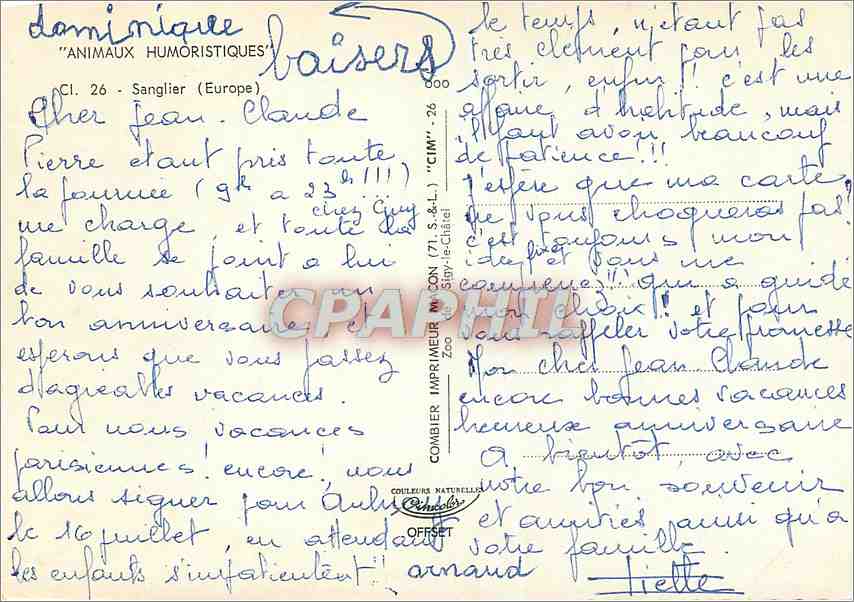 dominique
"ANIMAUX HUMORISTIQUES"
baisers
Cl. 26 - Sanglier (Europe)
Cher Jean-Claude
Pierre etant pris toute
la journée (9h a 23h!!!)
chez Guy
me charge, et toute la
famille se joint a lui
de vous souhaiter un
bon anniversaire, et
esperons que vous passez
d'agréables vacances.
Pour nous vacances
parisiennes! encore! nous
allons signer pour
le 16 juillet, en attendant
les enfants s'impatientent!!
arnaud
COMBIER IMPRIMEUR MACON (71. S.-&-L.) "CIM" - 26
Zoo de Sigy-le-Châtel
COULEURS NATURELLES
Cimcolor
OFFSET
CPAPHIL
le temps, n'étant pas
très clément pour les
sortir, enfin!! c'est une
affaire d'habitude, mais
il faut avoir beaucoup
de patience!!!
J'espère que ma carte,
ne vous choquera pas!
c'est toujours mon
idée fixe et vous me
connaissez!!! qui a guidé
mon choix! et pour
vous rappeler votre promesse
Mon cher Jean Claude
encore bonnes vacances
heureux anniversaire
A bientôt avec
notre bon souvenir
et amitiés ainsi qu'a
votre famille.